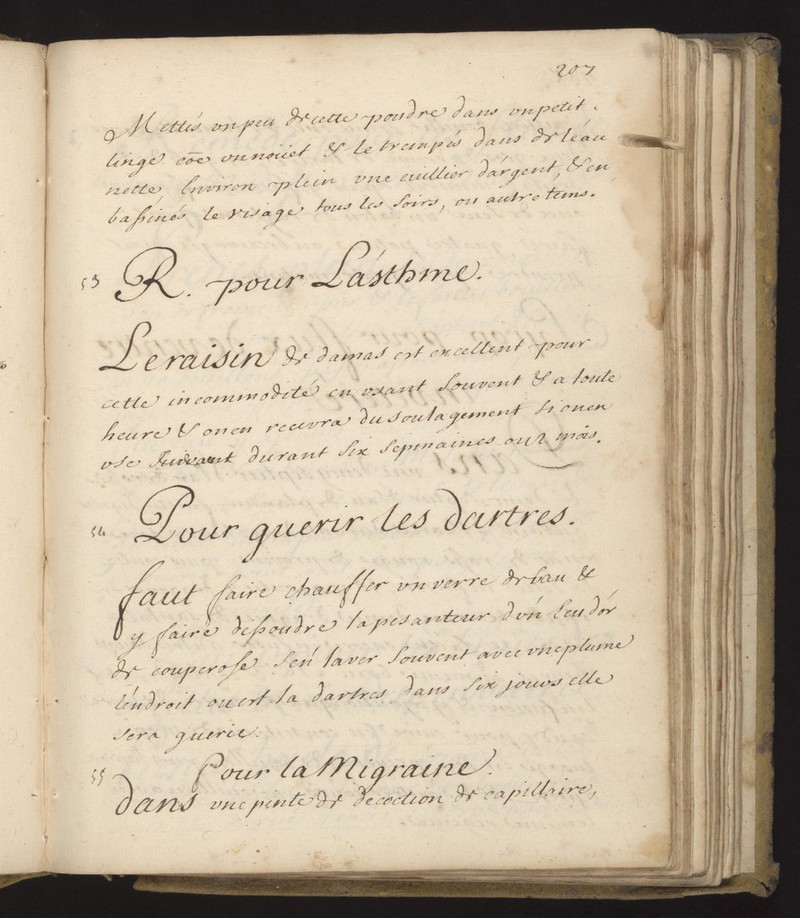 207
Mettés un peu de cette poudre dans un petit
linge cõe un noüet & le trempés dans de léau
nette Environ plein une cuillier dárgent, & en
baßinés le visage tous les soirs, ou autre tems.
53 R. pour Lásthme.
Le raisin de damas est excellent pour
cette incommodité en usant souvent & a toute
heure & on en recevra du soulagement si on en
use durant six sepmaines ou 2 mois.
54 Pour guerir les dartres.
faut faire chauffer un verre de Eau &
y faire dißoudre la pesanteur dún Ecu dór
de couperose sén laver souvent avec une plume
léndroit ou est la dartres dans six jours elle
sera guerie.
55 Pour la Migraine.
Dans une pinte de decoction de capillaire,